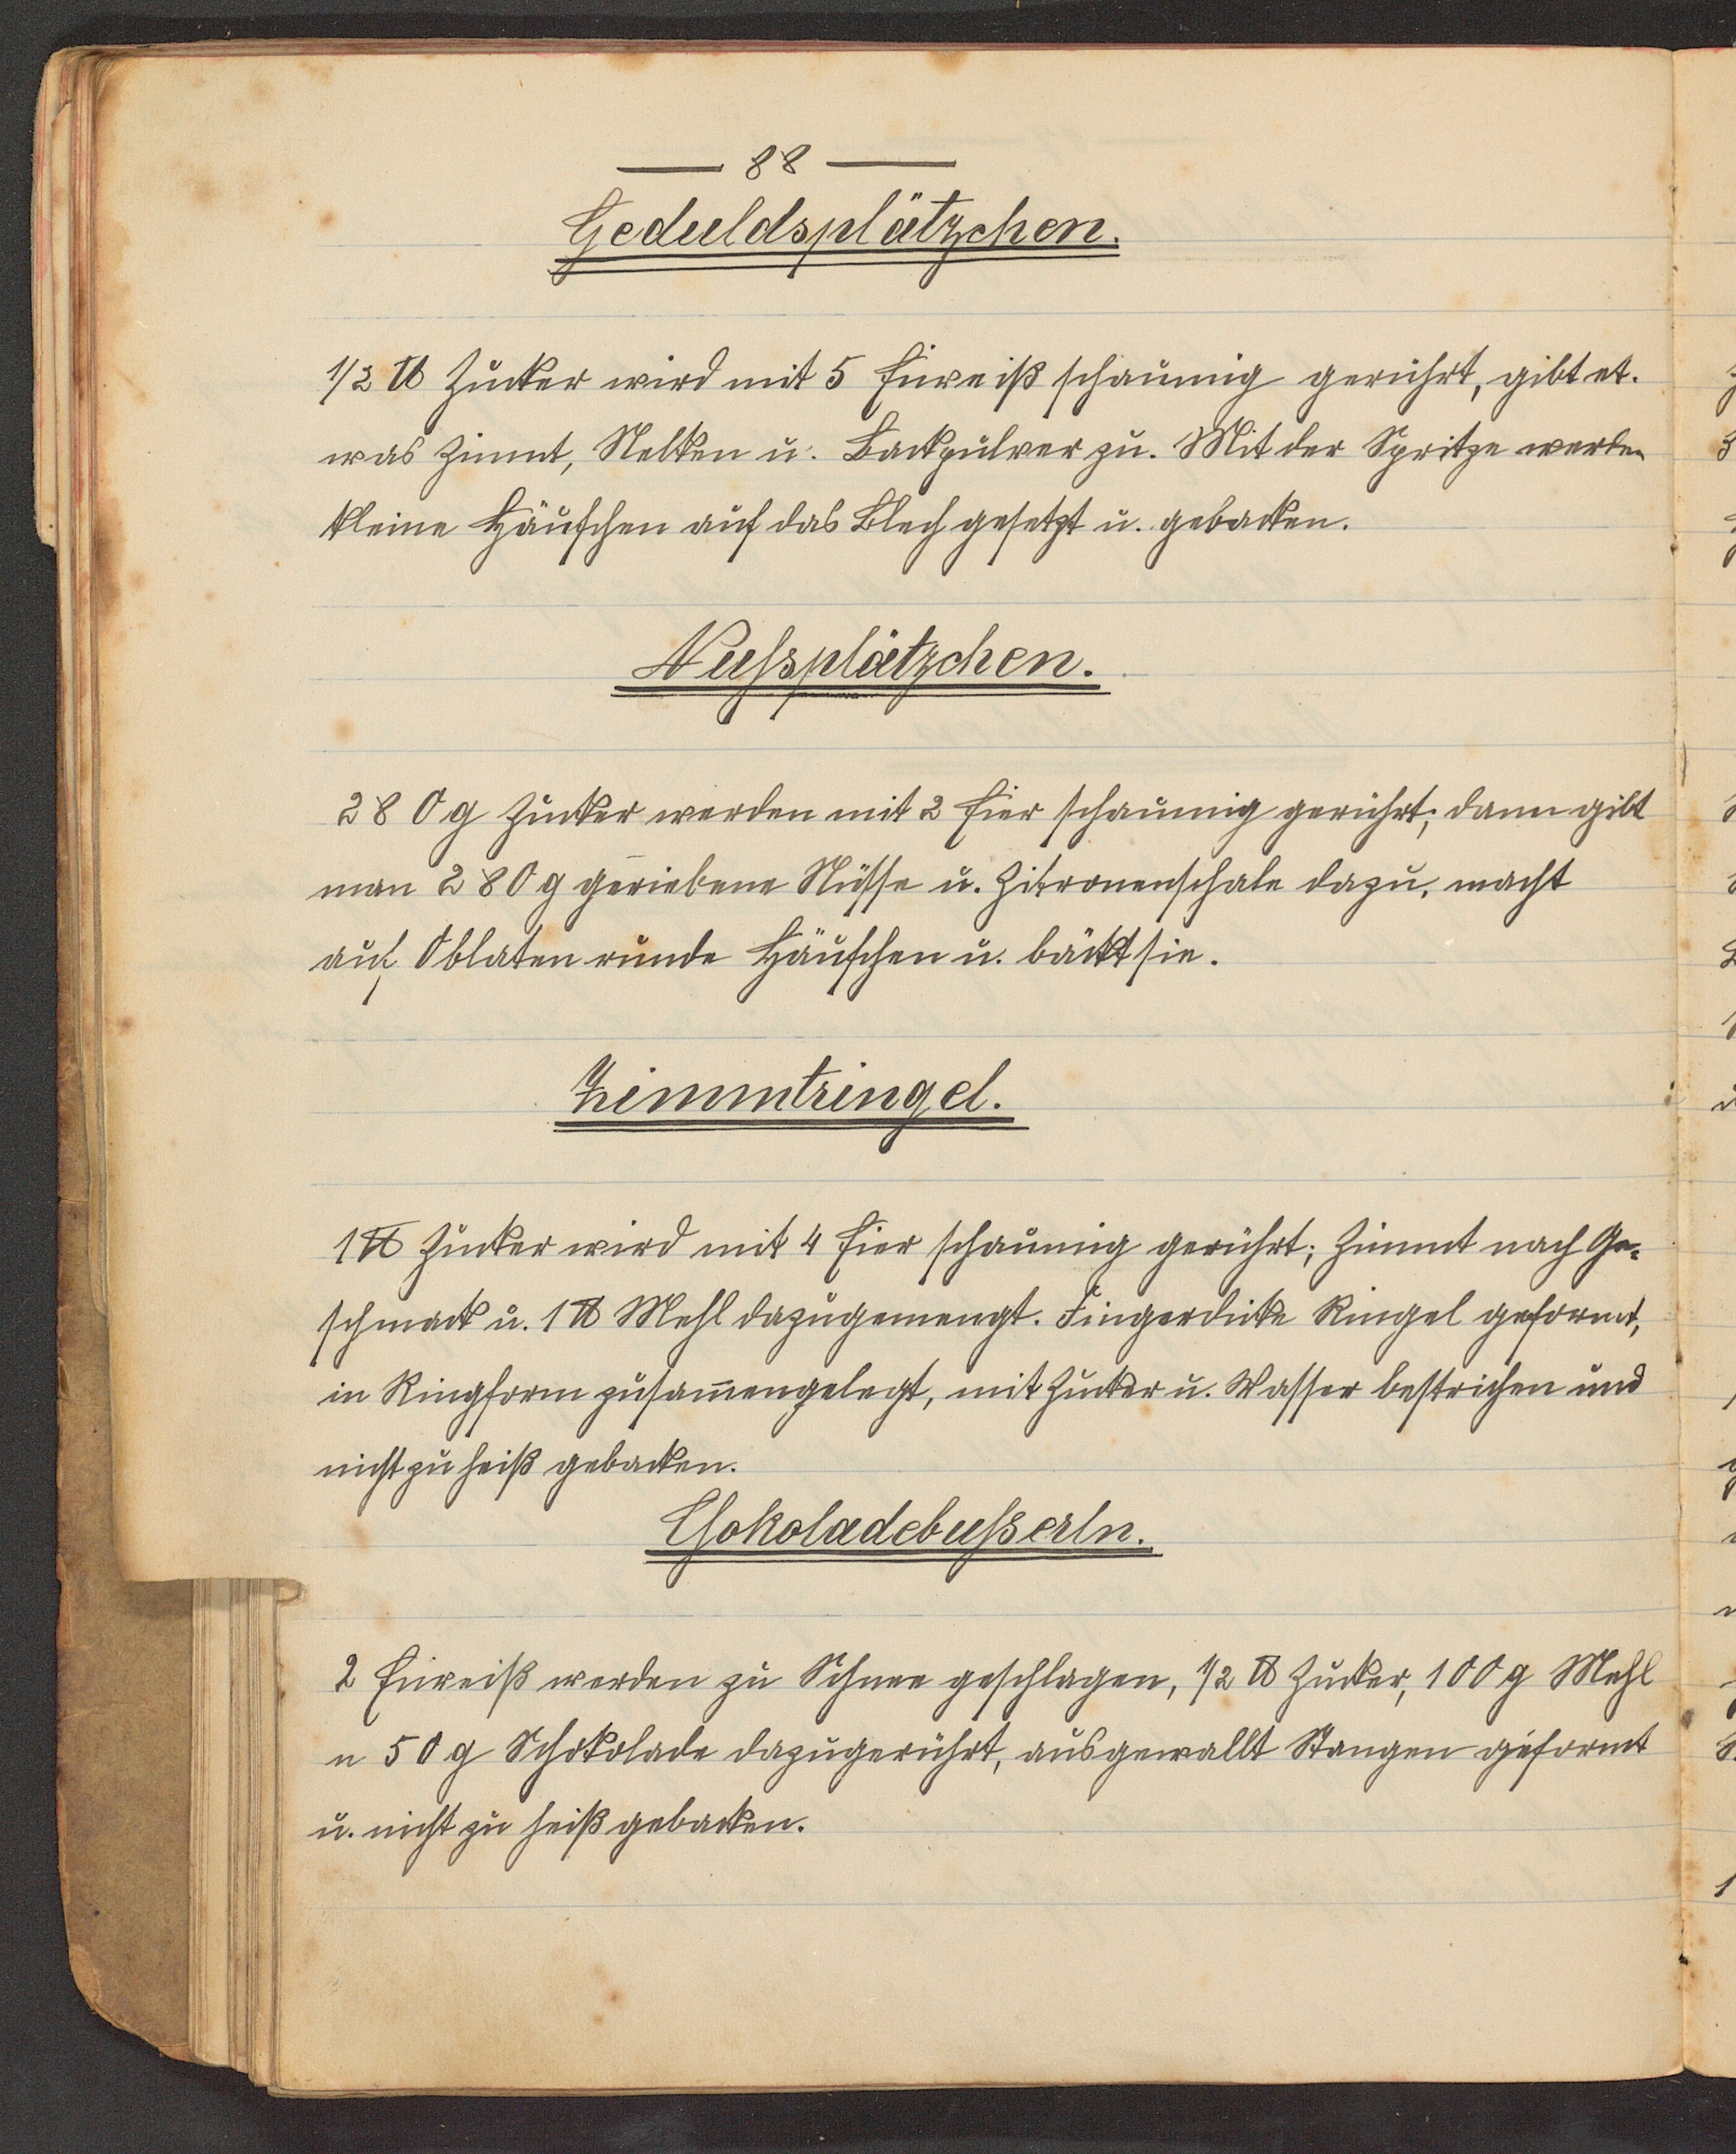 — 88 —
Geduldsplätzchen.
1/2 ℔ Zucker wird mit 5 Eiweiß schaumig gerührt, gibt et-
was Zimmt, Nelken u. Backpulver zu. Mit der Spritze werden
kleine Häufchen auf das Blech gesetzt u. gebacken.
Nussplätzchen.
280 g Zucker werden mit 2 Eier schaumig gerührt; dann gibt
man 280 g geriebene Nüsse u. Zitronenschale dazu, macht
auf Oblaten runde Häufchen u. bäckt sie.
Zimmtringel.
1 ℔ Zucker wird mit 4 Eier schaumig gerührt; Zimmt nach Ge-
schmack u. 1 ℔ Mehl dazugemengt. Fingerdicke Ringel geformt,
in Ringform zusam̄engelegt, mit Zucker u. Wasser bestrichen und
nicht zu heiß gebacken.
Chokoladebußerln.
2 Eiweiß werden zu Schnee geschlagen, 1/2 ℔ Zucker, 100 g Mehl
u 50 g Schokolade dazugerührt, ausgewallt Stangen geformt
u. nicht zu heiß gebacken.